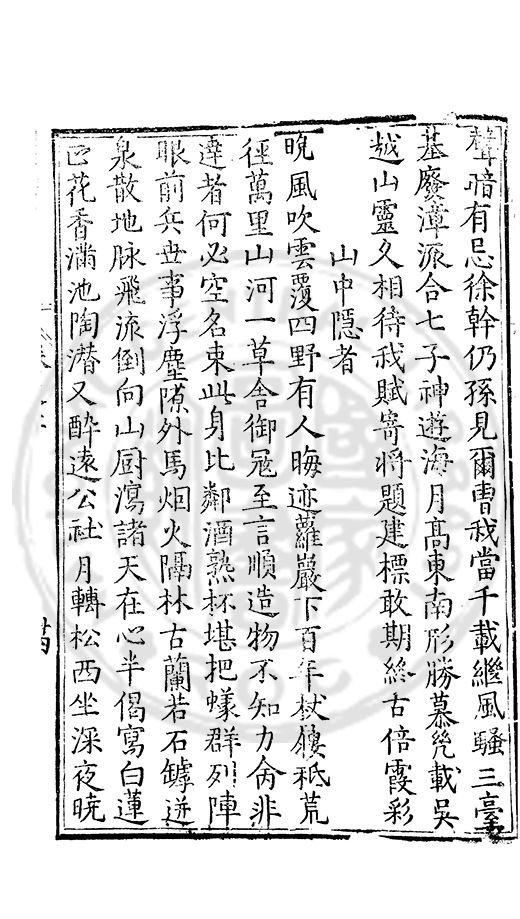 聲暗有忌徐幹仍孫見爾曹我當千載繼風騷三臺
基廢漳派合七子神遊海月高東南形勝慕幾載吳
越山靈久相待我賦寄將題建標敢期終古倍霞彩
山中隱者
晚風吹雲覆四野有人晦迹蘿巖下百年杖屨秪荒
徑萬里山河一草舍御冦至言順造物不知力命非
達者何必空名束此身比鄰酒熟杯堪把蟻群列陣
眼前兵世事浮塵隙外馬烟火隔林古蘭若石罅迸
泉散地脉飛流倒向山厨瀉諸天在心半偈寫白蓮
花香滿池陶潛又醉遠公社月轉松西坐深夜曉